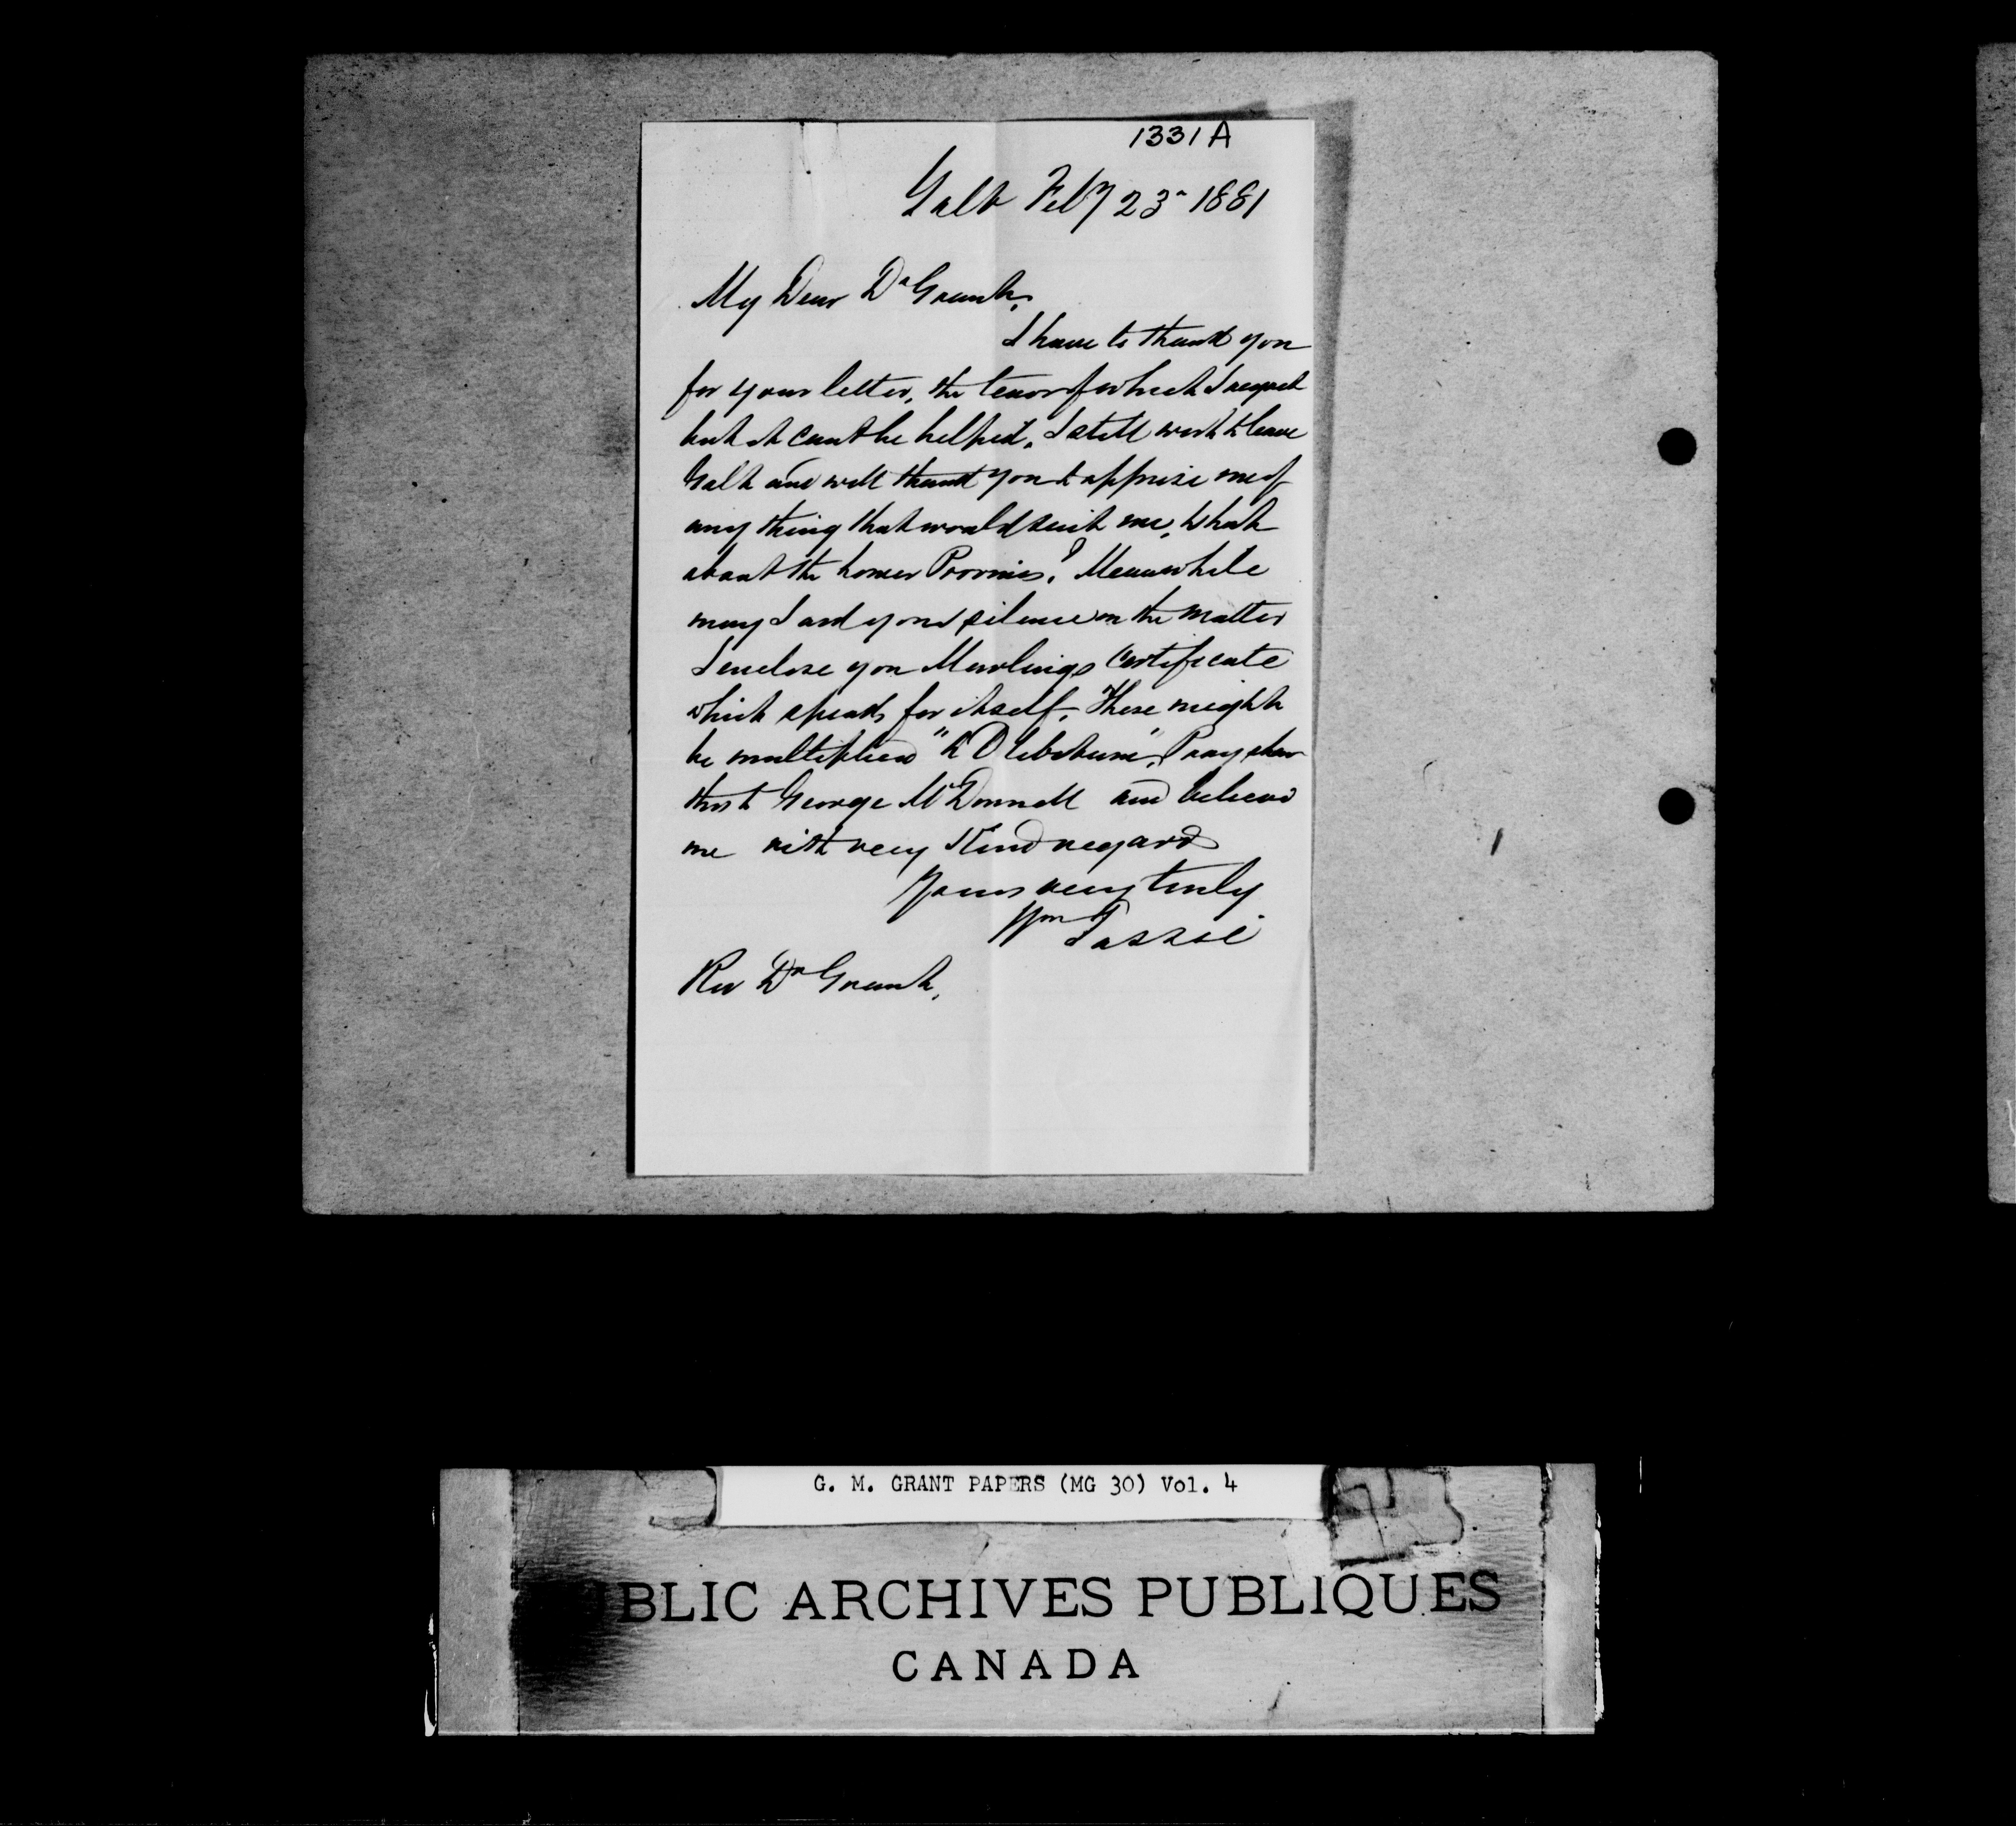 1331 A
Galt Feby 23r 1881
My Dear Dr Grant,
I have to thank you
for your letter, the tenor of which I regret
but it cant be helped. I still wish to leave
Galt and will thank you to apprise me of
any thing that would suit me. What
about the lower Provinces? Meanwhile
may I ask your silence on the matter
I enclose you certificate
which speaks for itself. These might
be multiplied "ad libitum". Pray shew
this to George McDonnell and believe
me with very kind regards
Yours very truly
Wm Tassie
Rev Dr Grant,
G. M. GRANT PAPERS (MG 30) Vol. 4
BLIC ARCHIVES PUBLIQUES
CANADA